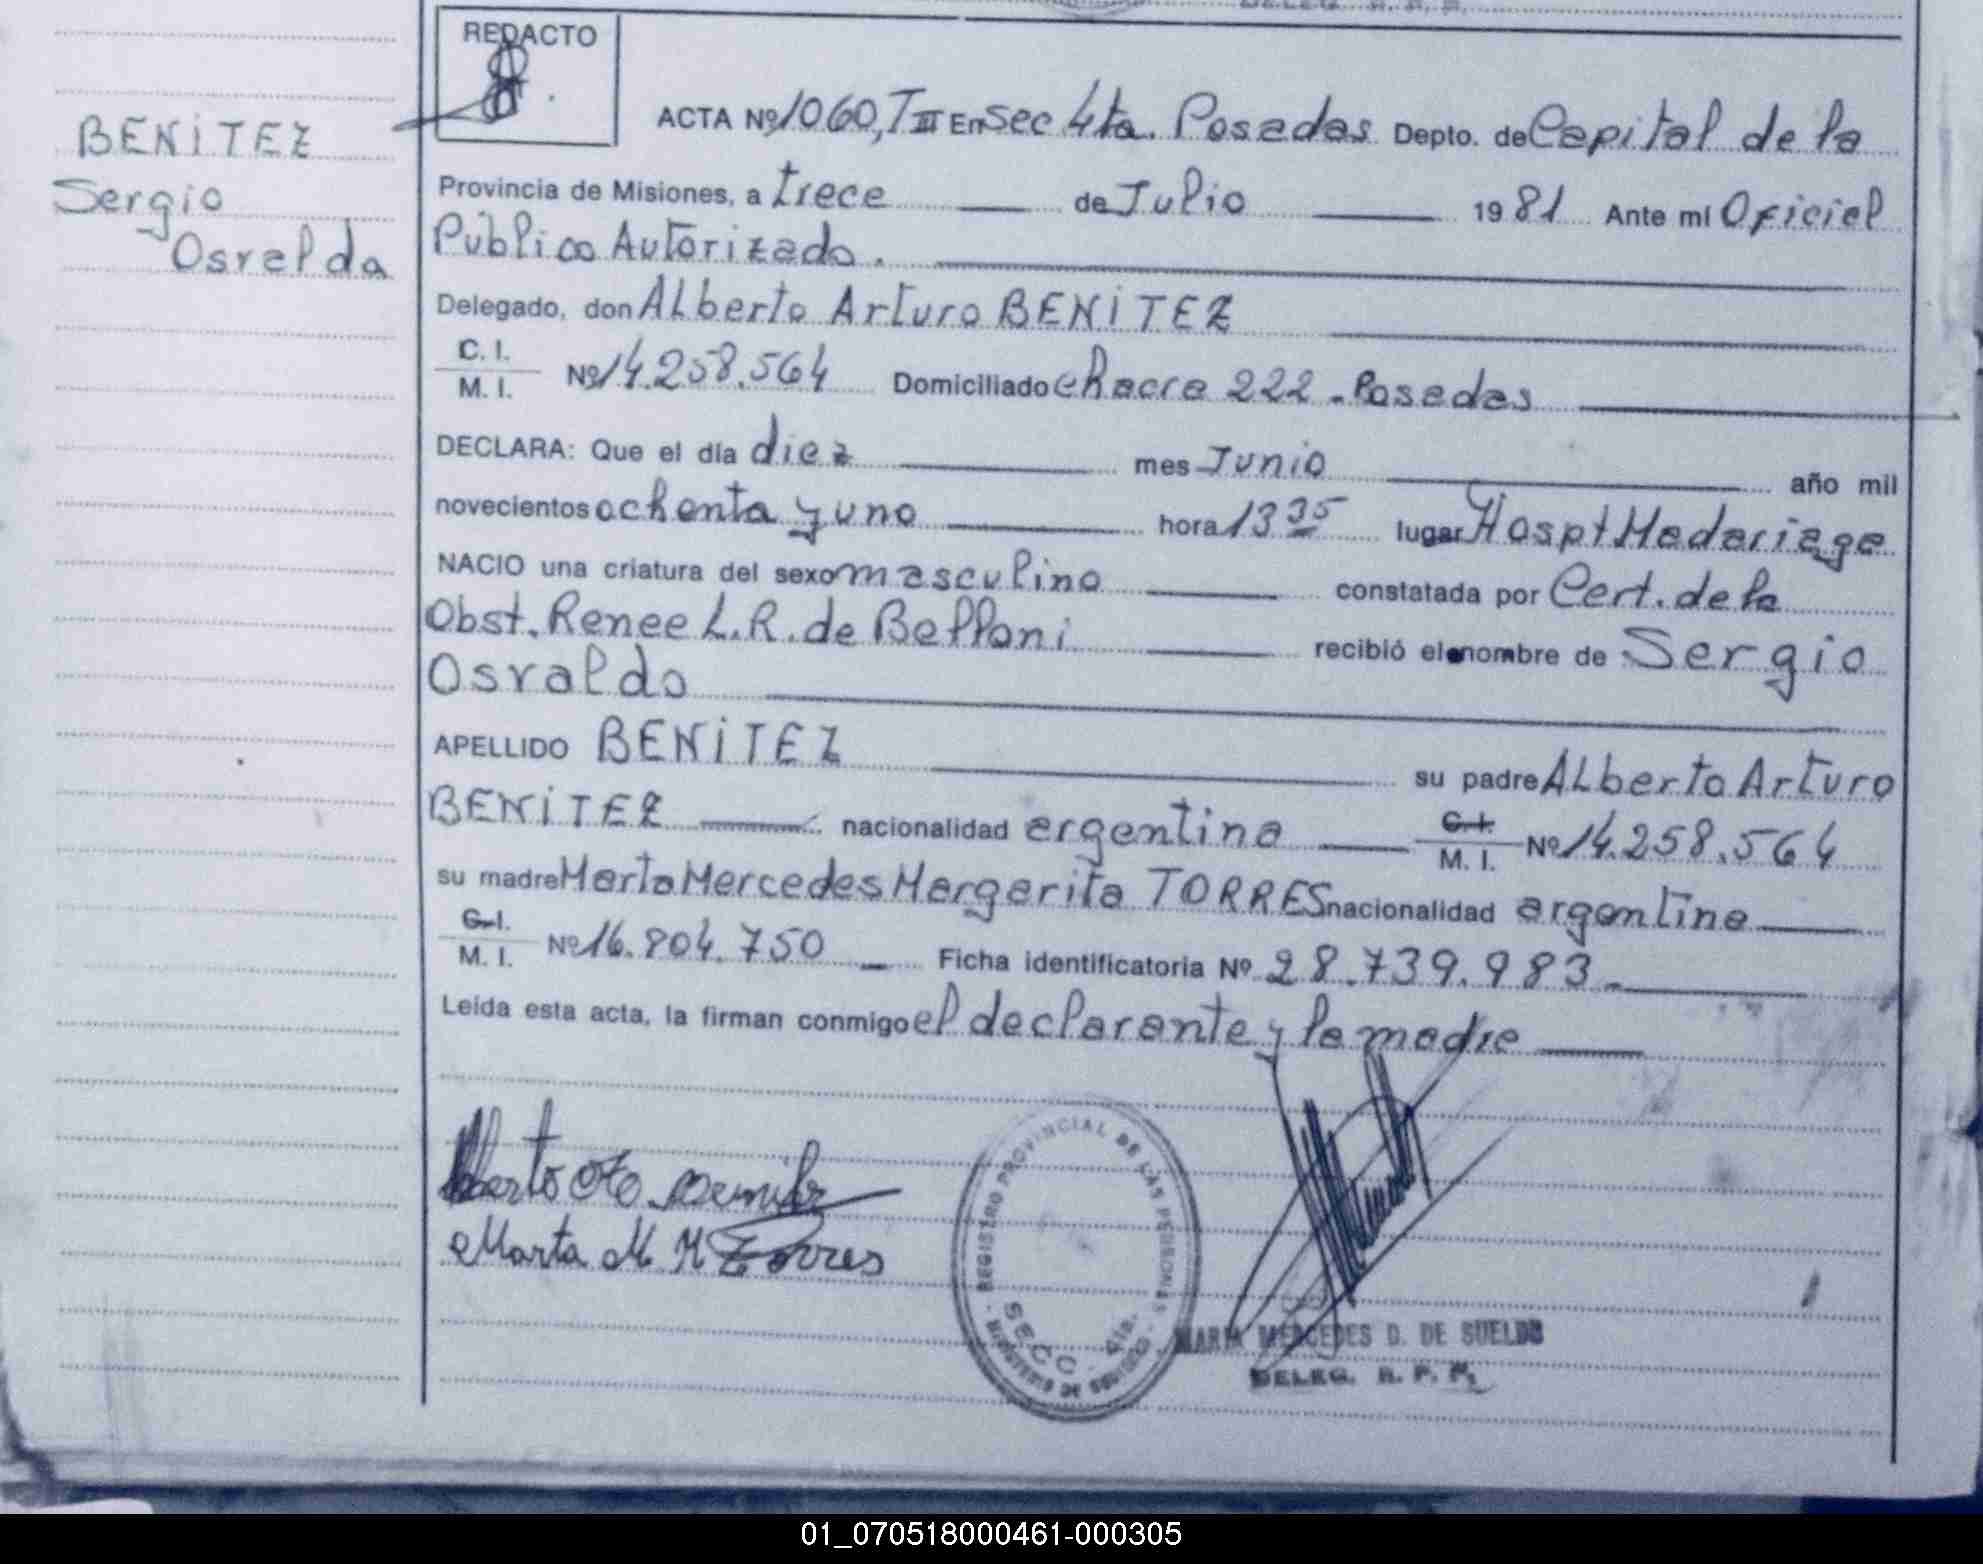 DELEG. R. P. P.
REDACTO
BENITEZ
Sergio
Osvaldo
ACTA Nº 1060, T III En Sec 4ta. Posadas Depto. de Capital de la
Provincia de Misiones, a trece de Julio 1981 Ante mi Oficial
Publico Autorizado.
Delegado, don Alberto Arturo BENITEZ
C. I.
M. I. Nº 14.258.564 Domiciliado chacra 222 - Posadas
DECLARA: Que el día diez mes Junio año mil
novecientos ochenta y uno hora 13 35 lugar Hospt Madariaga
NACIO una criatura del sexo masculino constatada por Cert. de la
Obst. Renee L. R. de Belloni recibió el nombre de Sergio
Osvaldo
APELLIDO BENITEZ su padre Alberto Arturo
BENITEZ nacionalidad argentina C. I.
M. I. Nº 14.258.564
su madre Marta Mercedes Margarita TORRES nacionalidad argentina
C. I.
M. I. Nº 16.804.750 Ficha identificatoria Nº 28.739.983
Leída esta acta, la firman conmigo el declarante y la madre
Marta M M Torres
REGISTRO PROVINCIAL DE LAS PERSONAS
SECC. 4ta.
MARIA MERCEDES D. DE SUELDO
DELEG. R. P. P.
01_070518000461-000305